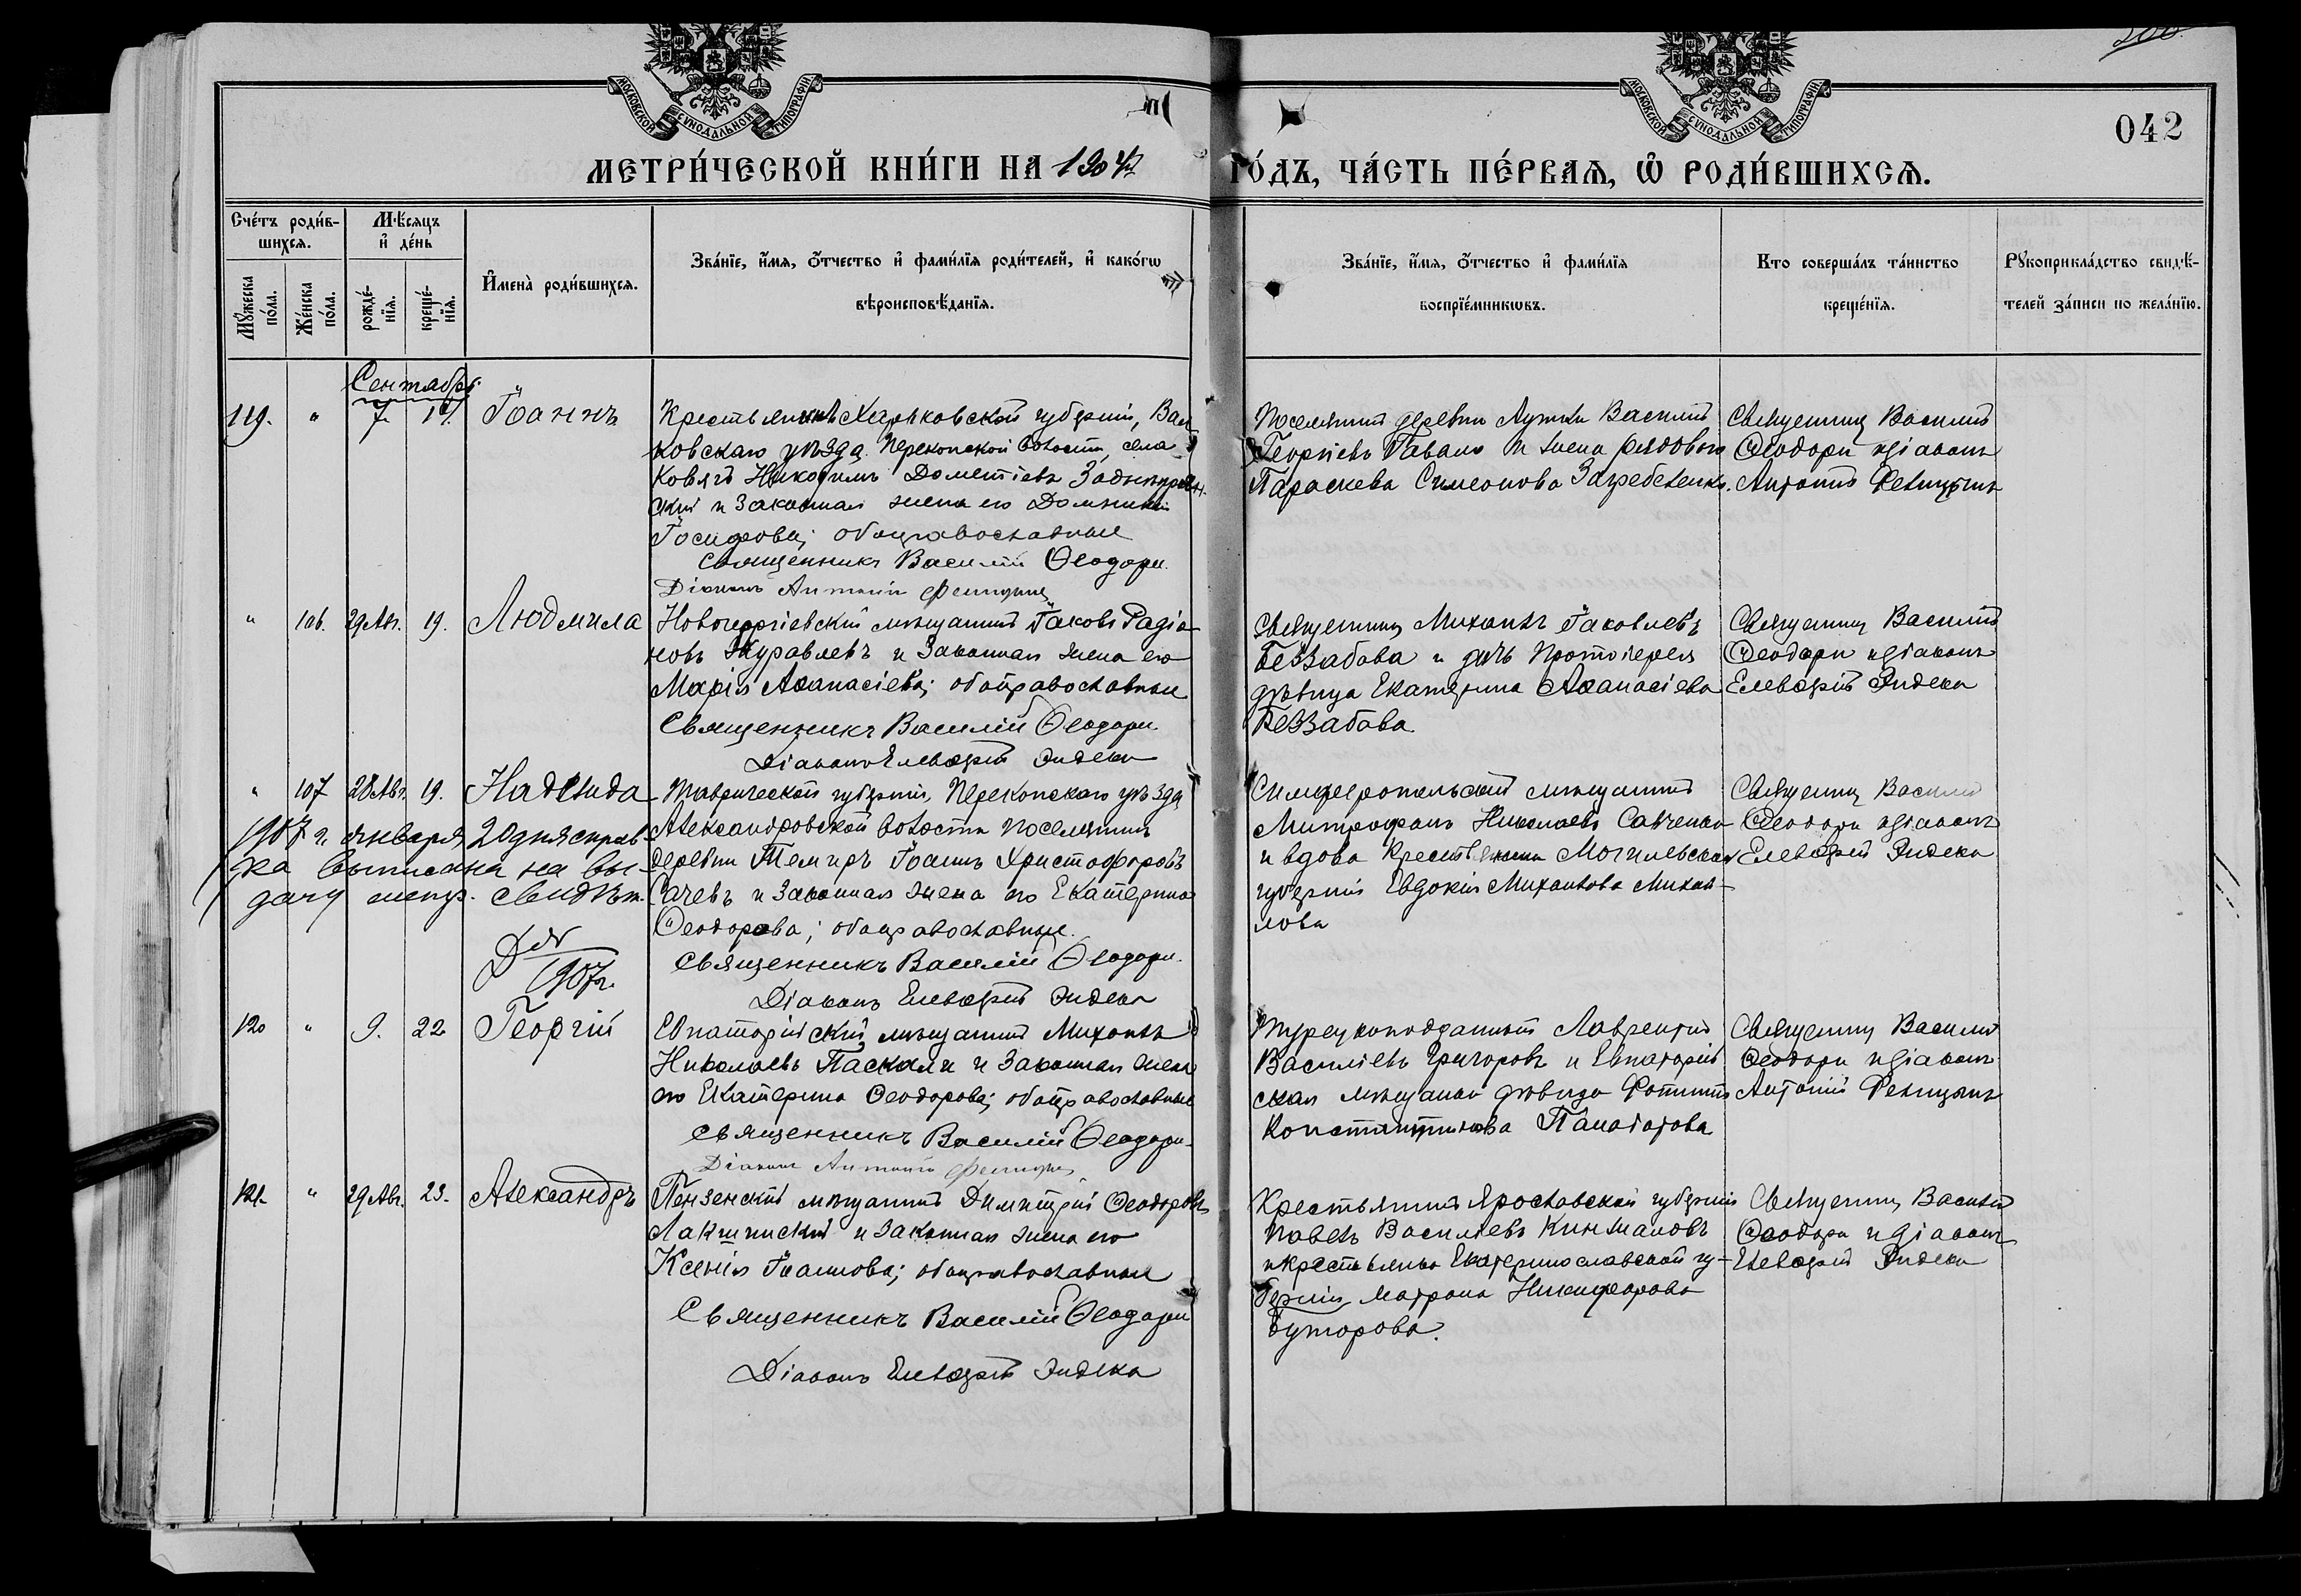 МОСКОВСКОЙ СѴНОДАЛЬНОЙ ТИПОГРАФІИ
МОСКОВСКОЙ СѴНОДАЛЬНОЙ ТИПОГРАФІИ
042
МЕТРИ́ЧЕСКОЙ КНИ́ГИ НА 1904
ГО́ДЪ, ЧА́СТЬ ПЕ́РВАЯ, Ѡ РОДИ́ВШИХСЯ.
Сче́тъ роди́в-
шихся.
Му́жеска по́ла.
Же́нска по́ла.
Мѣ́сяцъ и де́нь
рожде́нія.
креще́нія.
Имена̀ роди́вшихся.
Зва́ніе, и́мя, о́тчество и фами́лія роди́телей, и како́гѡ
вѣроисповѣ́данія.
Зва́ніе, и́мя, о́тчество и фами́лія
воспріе́мникѡвъ.
Кто соверша́лъ та́инство
креще́нія.
Рукоприкла́дство свидѣ́-
телей за́писи по жела́нію.
Сентябрь
119. " 7. Іоаннъ
Крестьянинъ Харьковской губерніи, Вал
ковскаго уѣзда Перекопской волости, села
Ковяга Никодимъ Дометіевъ Заднѣпрян
скій и законная жена его Домникія
Іосифова; оба православные
Священникъ Василій Ѳеодори.
Діаконъ Антоній Феницынъ
Поселянинъ деревни Василій
Георгіевъ и жена рядового
Параскева Симеонова Загребеленко.
Священникъ Василій
Ѳеодори и діаконъ
Антоній Феницынъ
" 106. 29 Авг. 19. Людмила
Новогеоргіевскій мѣщанинъ Іаковъ Радіо
новъ Журавлевъ и законная жена его
Марія Аѳанасіева; оба православные
Священникъ Василій Ѳеодори
Діаконъ Елевѳерій Эндека
Священникъ Михаилъ Іаковлевъ
Беззабава и дочь протоіерея
дѣвица Екатерина Аѳанасіева
Беззабава
Священникъ Василій
Ѳеодори и діаконъ
Елевѳерій Эндека
" 107 28 Авг. 19. Надежда
1907 г. января 20 дня справ
ка выписана на вы-
дачу метр. свидѣт.
1907 г.
Таврической губерніи, Перекопскаго уѣзда
Александровской волости поселянинъ
деревни Темиръ Іоаннъ Христофоровъ
Сачевъ и законная жена его Екатерина
Ѳеодорова; оба православные.
Священникъ Василій Ѳеодори.
Діаконъ Елевѳерій Эндека
Симферопольскій мѣщанинъ
Митрофанъ Николаевъ Савченко
и вдова крестьянина Могилевской
губерніи Евдокія Михаилова Михай-
лова
Священникъ Василій
Ѳеодори и діаконъ
Елевѳерій Эндека
120 " 9. 22 Георгій
Евпаторійскій мѣщанинъ Михаилъ
Николаевъ Паскали и законная жена
его Екатерина Ѳеодорова; оба православные
Священникъ Василій Ѳеодори
Діаконъ Антоній Феницынъ
Турецкоподданный Лаврентій
Василіевъ Григоровъ и Евпаторій
ская мѣщанка дѣвица Фотинія
Константинова Панаіотова
Священникъ Василій
Ѳеодори и діаконъ
Антоній Феницынъ
121. " 29 Авг. 23. Александръ
Пензенскій мѣщанинъ Димитрій Ѳеодоровъ
Лакшинскій и законная жена его
Ксенія Іоаннова; оба православные
Священникъ Василій Ѳеодори
Діаконъ Елевѳерій Эндека
Крестьянинъ Ярославской губерніи
Павелъ Василіевъ Кинмаковъ
и крестьянка Екатеринославской гу-
берніи Матрона Никифорова
Буторова.
Священникъ Василій
Ѳеодори и діаконъ
Елевѳерій Эндека